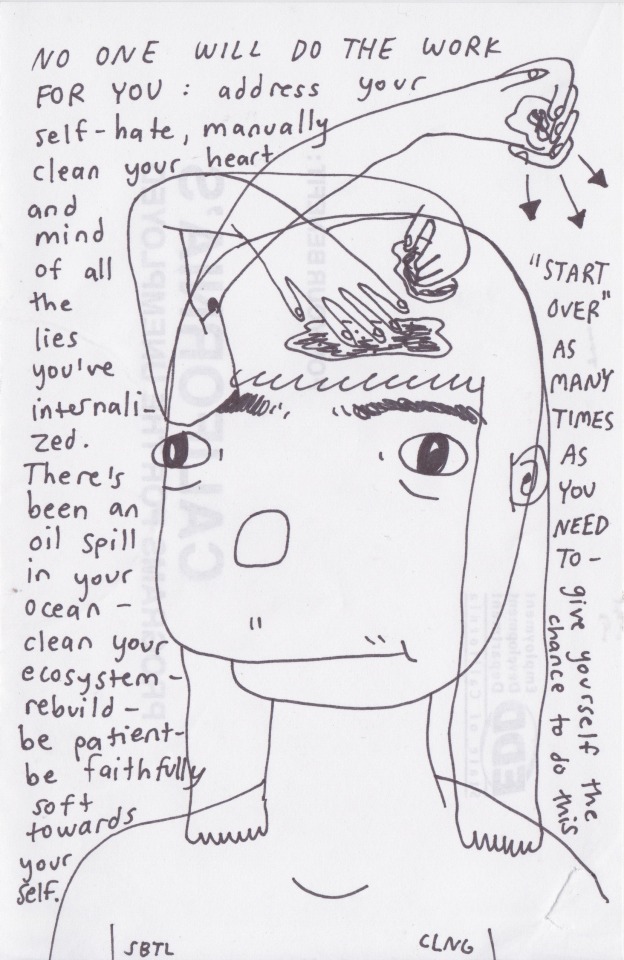 NO ONE WILL DO THE WORK
FOR YOU : address your
self-hate, manually
clean your heart
and
mind
of all
the
lies
you've
internali-
zed.
There's
been an
oil spill
in your
ocean -
clean your
ecosystem -
rebuild -
be patient -
be faithfully
soft
towards
your
self.
"START
OVER"
AS
MANY
TIMES
AS
YOU
NEED
TO -
give yourself the
chance to do this
SBTL
CLNG
PROGRAMS FOR THE UNEMPLOYED
CALIFORNIA'S
EDD
Employment
Development
Department
State of California